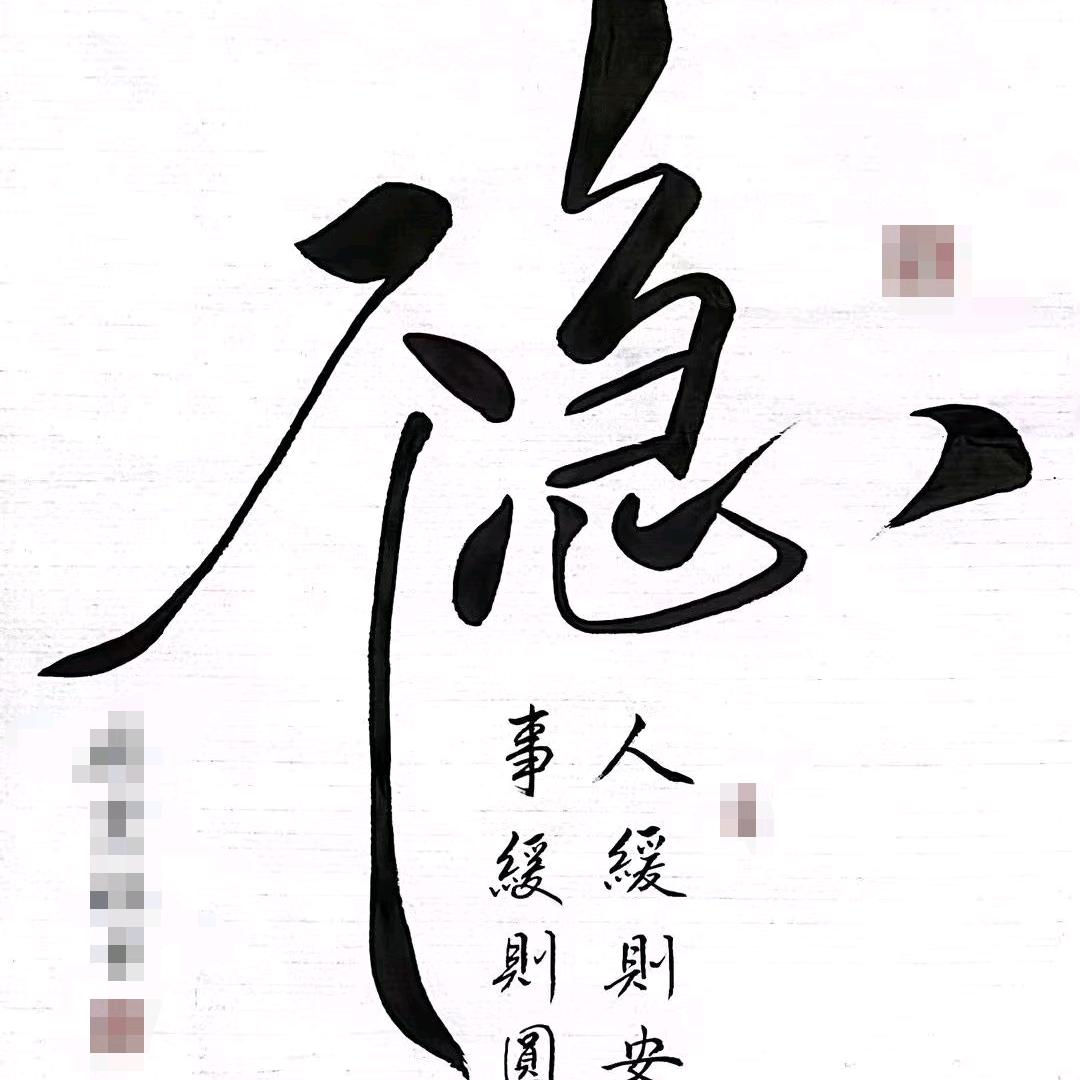 稳
人緩則安
事緩則圓